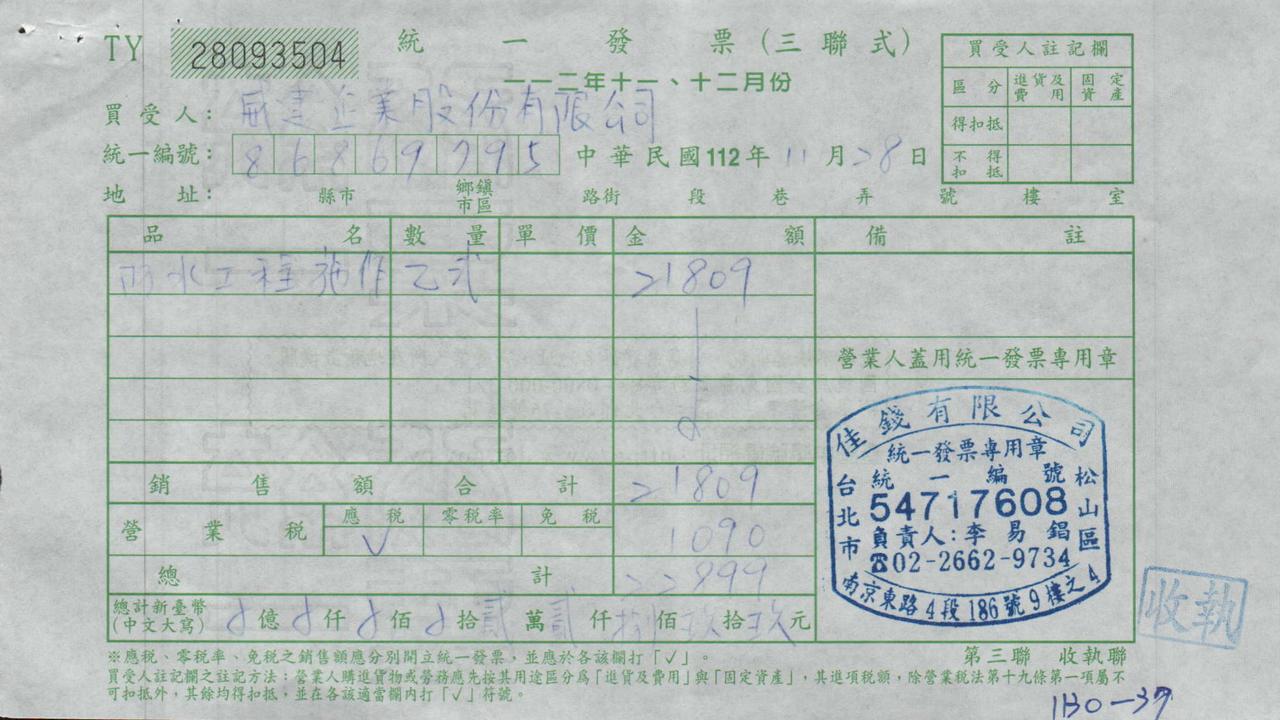 TY 28093504 統一發票(三聯式)
一一二年十一、十二月份
買受人註記欄
區分 進貨及費用 固定資產
得扣抵
不得扣抵
買受人: 威建企業股份有限公司
統一編號: 86869795 中華民國112年11月28日
地址: 縣市 鄉鎮市區 路街 段 巷 弄 號 樓 室
品名 數量 單價 金額 備註
防水工程施作 乙式 21809
營業人蓋用統一發票專用章
銷售額合計 21809
營業稅 應稅 零稅率 免稅
✓ 1090
總計 22899
總計新臺幣(中文大寫) 億 仟 佰 拾 貳 萬 貳 仟 捌 佰 玖 拾 玖 元
佳錢有限公司
統一發票專用章
統一編號
54717608
負責人:李易錩
☎02-2662-9734
台北市松山區
南京東路4段186號9樓之4
收執
※應稅、零稅率、免稅之銷售額應分別開立統一發票,並應於各該欄打「✓」。
第三聯 收執聯
買受人註記欄之註記方法:營業人購進貨物或勞務應先按其用途區分為「進貨及費用」與「固定資產」,其進項稅額,除營業稅法第十九條第一項屬不
可扣抵外,其餘均得扣抵,並在各該適當欄內打「✓」符號。
1130-37